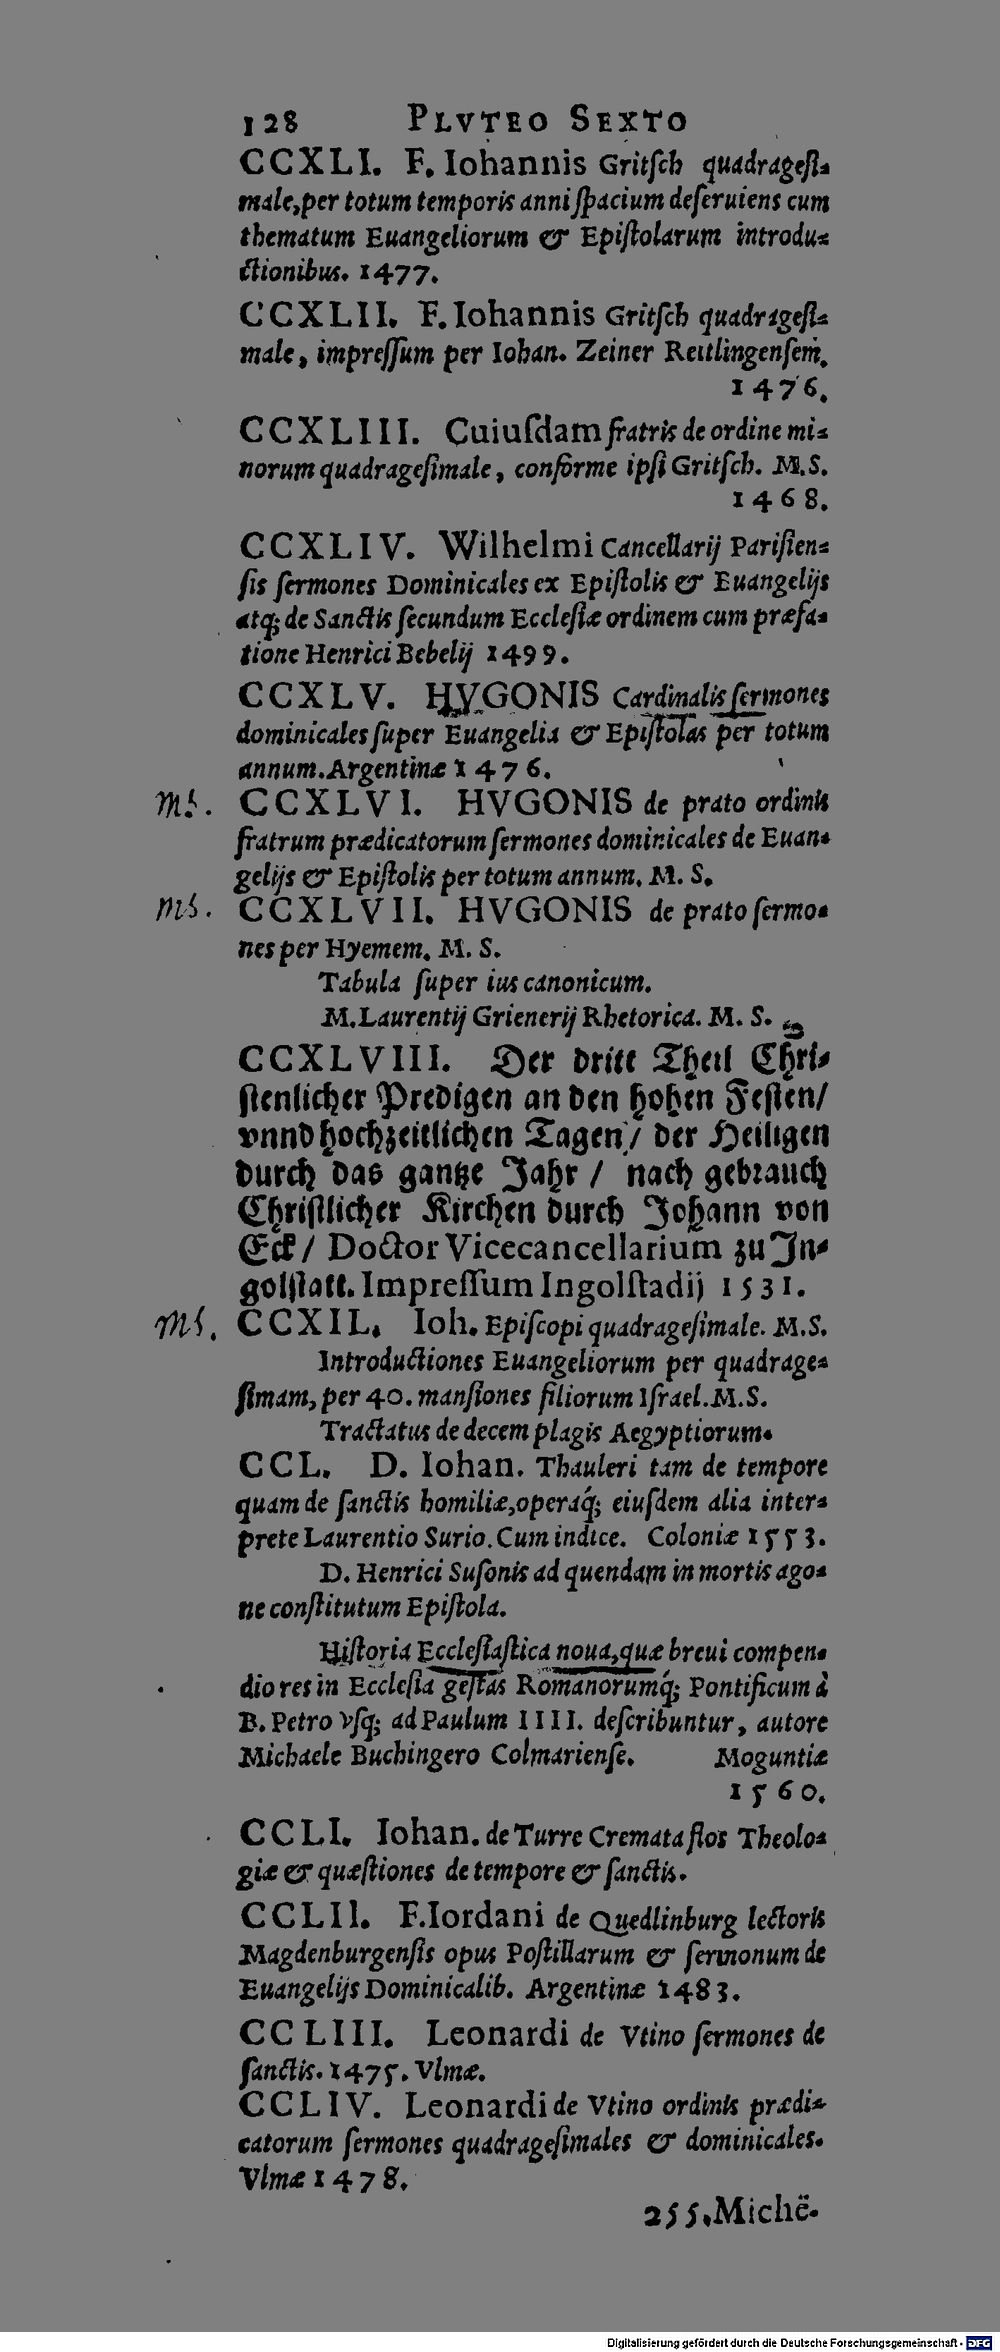 128 PLVTEO SEXTO
CCXLI. F. Iohannis Gritſch quadrageſi-
male, per totum temporis anni ſpacium deſeruiens cum
thematum Euangeliorum & Epiſtolarum introdu-
ctionibus. 1477.
CCXLII. F. Iohannis Gritſch quadrageſi-
male, impreſſum per Iohan. Zeiner Reutlingenſem.
1476.
CCXLIII. Cuiuſdam fratris de ordine mi-
norum quadrageſimale, conforme ipſi Gritſch. M.S.
1468.
CCXLIV. Wilhelmi Cancellarij Pariſien-
ſis ſermones Dominicales ex Epiſtolis & Euangelijs
atq; de Sanctis ſecundum Eccleſiæ ordinem cum præfa-
tione Henrici Bebelij 1499.
CCXLV. HVGONIS Cardinalis ſermones
dominicales ſuper Euangelia & Epiſtolas per totum
annum. Argentinæ 1476.
MS. CCXLVI. HVGONIS de prato ordinis
fratrum prædicatorum ſermones dominicales de Euan-
gelijs & Epiſtolis per totum annum. M. S.
MS. CCXLVII. HVGONIS de prato ſermo-
nes per Hyemem. M. S.
Tabula ſuper ius canonicum.
M. Laurentij Grienerij Rhetorica. M. S.
CCXLVIII. Der dritt Theil Chri-
ſtenlicher Predigen an den hohen Feſten/
vnnd hochzeitlichen Tagen / der Heiligen
durch das gantze Jahr / nach gebrauch
Chriſtlicher Kirchen durch Johann von
Eck / Doctor Vicecancellarium zu Jn-
golſtatt. Impreſſum Ingolſtadij 1531.
MS. CCXIL. Ioh. Epiſcopi quadrageſimale. M.S.
Introductiones Euangeliorum per quadrage-
ſimam, per 40. manſiones filiorum Iſrael. M.S.
Tractatus de decem plagis Aegyptiorum.
CCL. D. Iohan. Thauleri tam de tempore
quam de ſanctis homiliæ, operáq; eiuſdem alia inter-
prete Laurentio Surio. Cum indice. Coloniæ 1553.
D. Henrici Suſonis ad quendam in mortis ago-
ne conſtitutum Epiſtola.
Hiſtoria Eccleſiaſtica noua, quæ breui compen-
dio res in Eccleſia geſtas Romanorumq́; Pontificum à
B. Petro vſq; ad Paulum IIII. deſcribuntur, autore
Michaele Buchingero Colmarienſe. Moguntiæ
1560.
CCLI. Iohan. de Turre Cremata flos Theolo-
giæ & quæſtiones de tempore & ſanctis.
CCLII. F. Iordani de Quedlinburg lectoris
Magdenburgenſis opus Poſtillarum & ſermonum de
Euangelijs Dominicalib. Argentinæ 1483.
CCLIII. Leonardi de Vtino ſermones de
ſanctis. 1475. Vlmæ.
CCLIV. Leonardi de Vtino ordinis prædi-
catorum ſermones quadrageſimales & dominicales.
Vlmæ 1478.
255. Michë.
Digitalisierung gefördert durch die Deutsche Forschungsgemeinschaft - DFG